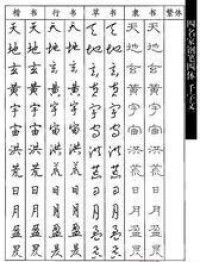 楷 书 行 书 草 书 隶 书 繁体
天 天 天 天
地 地 地 地
玄 玄 玄 玄
黄 黄 黄 黄
宇 宇 宇 宇
宙 宙 宙 宙
洪 洪 洪 洪
荒 荒 荒 荒
日 日 日 日
月 月 月 月
盈 盈 盈 盈
昃 昃 昃 昃
四名家钢笔四体《千字文》